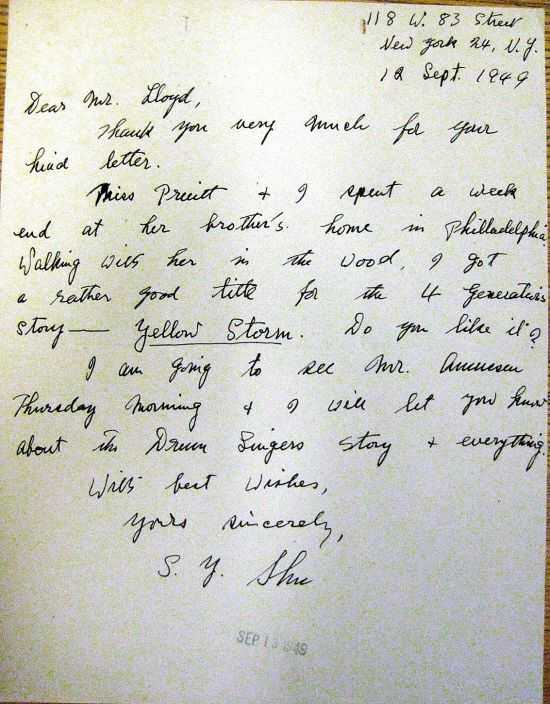 118 W. 83 Street
New York 24, N.Y.
12 Sept. 1949
Dear Mr. Lloyd,
Thank you very much for your
kind letter.
Miss Pruitt & I spent a week
end at her brother's home in Philladelphia.
Walking with her in the wood, I got
a rather good title for the 4 Generations
story — Yellow Storm. Do you like it?
I am going to see Mr.
Thursday morning & I will let you know
about the Drum Singers story & everything.
With best wishes,
Yours sincerely,
S. Y. Shu
SEP 13 1949